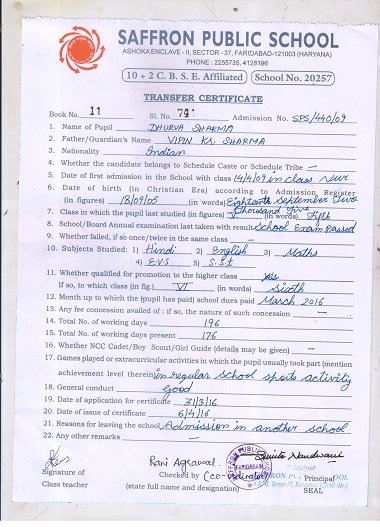 SAFFRON PUBLIC SCHOOL
ASHOKA ENCLAVE - II, SECTOR - 37, FARIDABAD-121003 (HARYANA)
PHONE : 2255735, 4128196
10 + 2 C. B. S. E. Affiliated School No. 20257
TRANSFER CERTIFICATE
Book No. 11 Sl. No. 741 Admission No. SPS/440/09
1. Name of Pupil DHURVA SHARMA
2. Father/Guardian's Name VIPIN Kr. SHARMA
3. Nationality Indian
4. Whether the candidate belongs to Schedule Caste or Schedule Tribe —
5. Date of first admission in the School with class 14/4/09 in class nur
6. Date of birth (in Christian Era) according to Admission Register
(in figures) 18/09/05 (in words) Eighteenth September Two
Thousand Five
7. Class in which the pupil last studied (in figures) V (in words) Fifth
8. School/Board Annual examination last taken with result School Exam passed
9. Whether failed, if so once/twice in the same class —
10. Subjects Studied: 1) Hindi 2) English 3) Maths
4) E.V.S 5) S.St
11. Whether qualified for promotion to the higher class yes
If so, to which class (in fig.) VI (in words) Sixth
12. Month up to which the (pupil has paid) school dues paid March 2016
13. Any fee concession availed of : if so, the nature of such concession —
14. Total No. of working days 196
15. Total No. of working days present 176
16. Whether NCC Cadet/Boy Scout/Girl Guide (details may be given) —
17. Games played or extracurricular activities in which the pupil usually took part (mention
achievement level therein) in regular school sports activity
18. General conduct good
19. Date of application for certificate 31/3/16
20. Date of issue of certificate 6/4/16
21. Reasons for leaving the school Admission in another school
22. Any other remarks —
Rani Agrawal
Signature of Checked by (co-ordinator) Principal
Class teacher (state full name and designation) SEAL
FARIDABAD
Principal